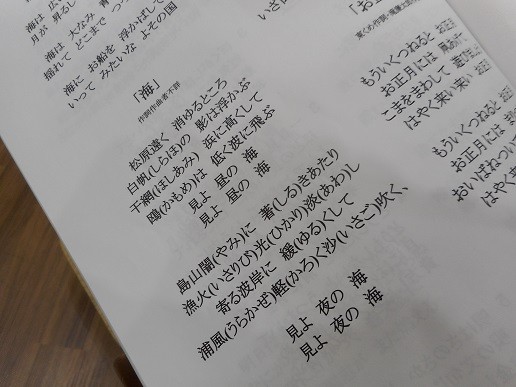 海は 広
月が 昇るし
海は 大なみ 青
揺れて どこまで つづ
海に お船を 浮かばして
いって みたいな よその国
「海」
作詞作曲者不詳
松原遠く 消ゆるところ
白帆(しらほ)の 影は浮かぶ
干網(ほしあみ) 浜に高くして
鴎(かもめ)は 低く波に飛ぶ
見よ 昼の 海
見よ 昼の 海
島山闇(やみ)に 著(しる)きあたり
漁火(いさりび)光(ひかり)淡(あわ)し
寄る波岸に 緩(ゆる)くして
浦風(うらかぜ)軽(かろ)く沙(いさご)吹く、
見よ 夜の 海
見よ 夜の 海
いさ
「お正
東くめ作詞・滝廉太郎
もういくつねると お正
お正月には 凧あげ
こまをまわして 遊び
はやく来い来い お正
もういくつねると
お正月には
おいばねつい
はやく来